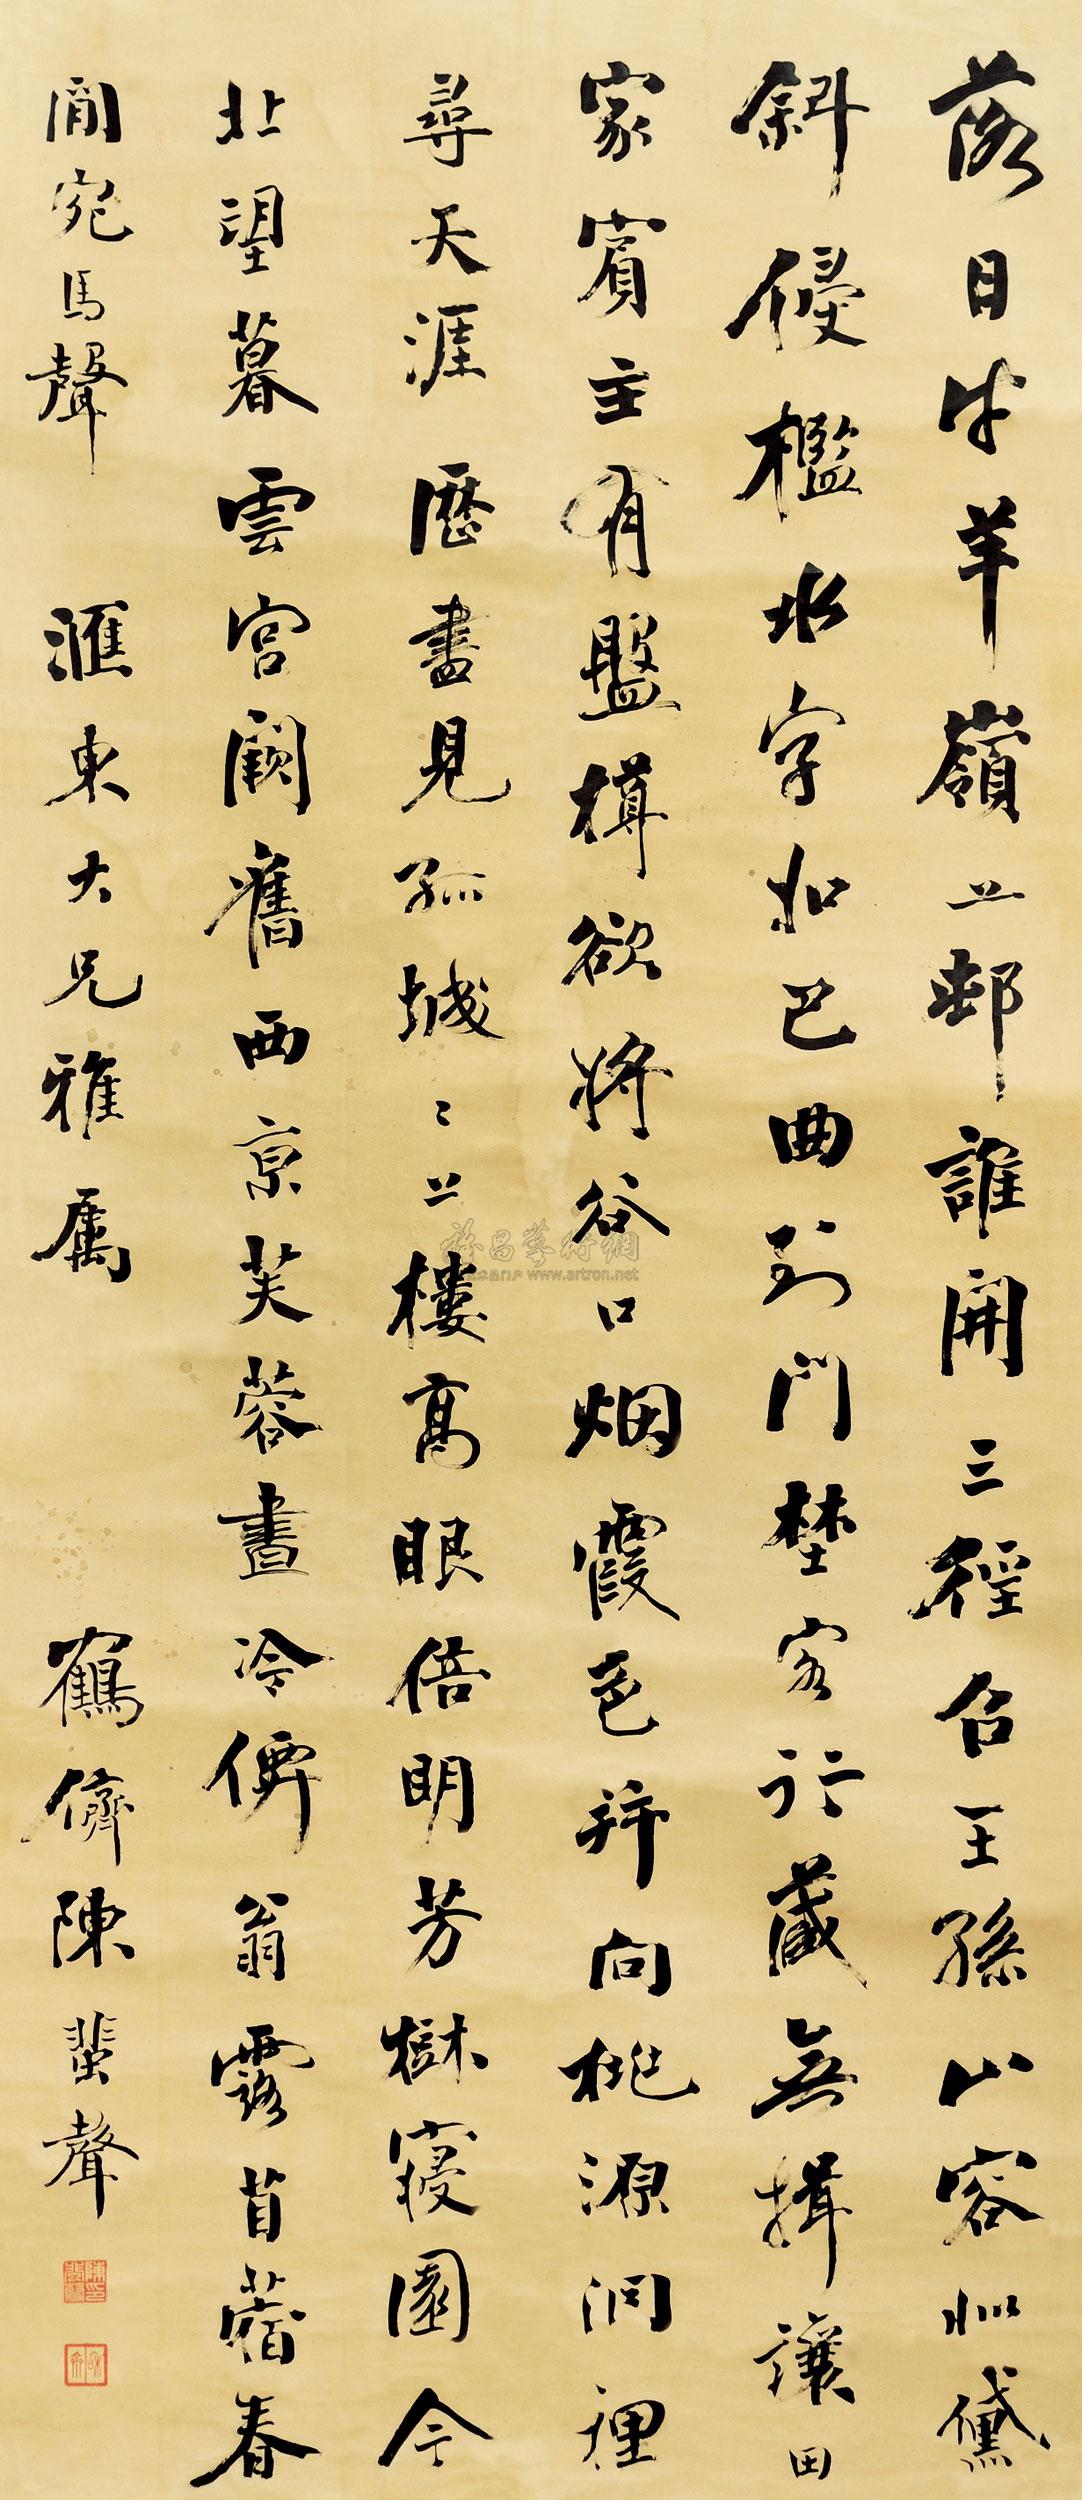 落日牛羊嶺上邨誰開三徑召王孫山容似黛
斜侵檻水字如巴曲到門埜客行藏無揖讓田
家賓主有盤樽欲將谷口烟霞色并向桃源洞裡
尋天涯歷盡見孤城〻上樓高眼倍明芳樹寢園今
北望暮雲宮闕舊西京芙蓉晝冷僊翁露苜蓿春
閒宛馬聲 滙東大兄雅屬 鶴儕陳蜚聲
雅昌藝術網
www.artron.net